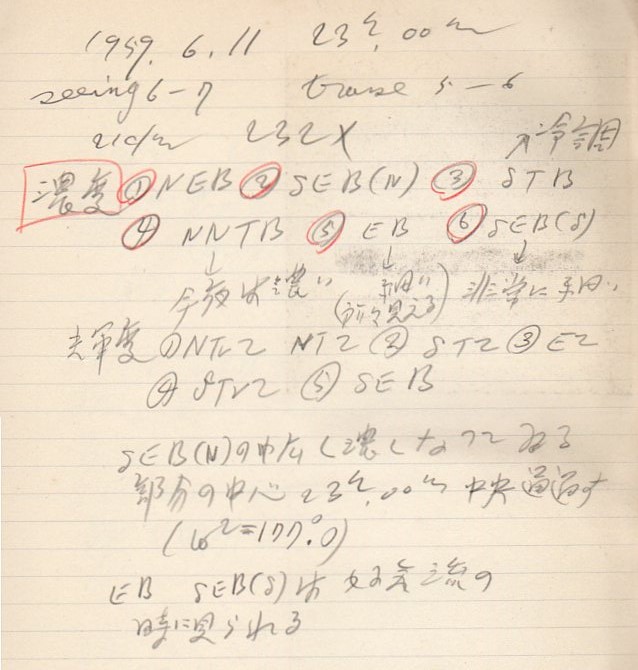 1959. 6. 11 23h.00m
seeing 6-7 transe 5-6
21cm 232X
濃度 ① NEB ② SEB(N) ③ STB
④ NNTB ⑤ EB ⑥ SEB(S)
↓ ↓ ↓
今夜は濃い 細い 非常に細い
(所々見える)
光輝度 ①NTrZ NTZ ② STZ ③ EZ
④ STrZ ⑤ SEB
SEB(N)の中広く濃くなってゐる
部分の中心 23h.00m 中央通過す
(ω2=177.°0)
EB SEB(S)は 好気流の
時に見られる